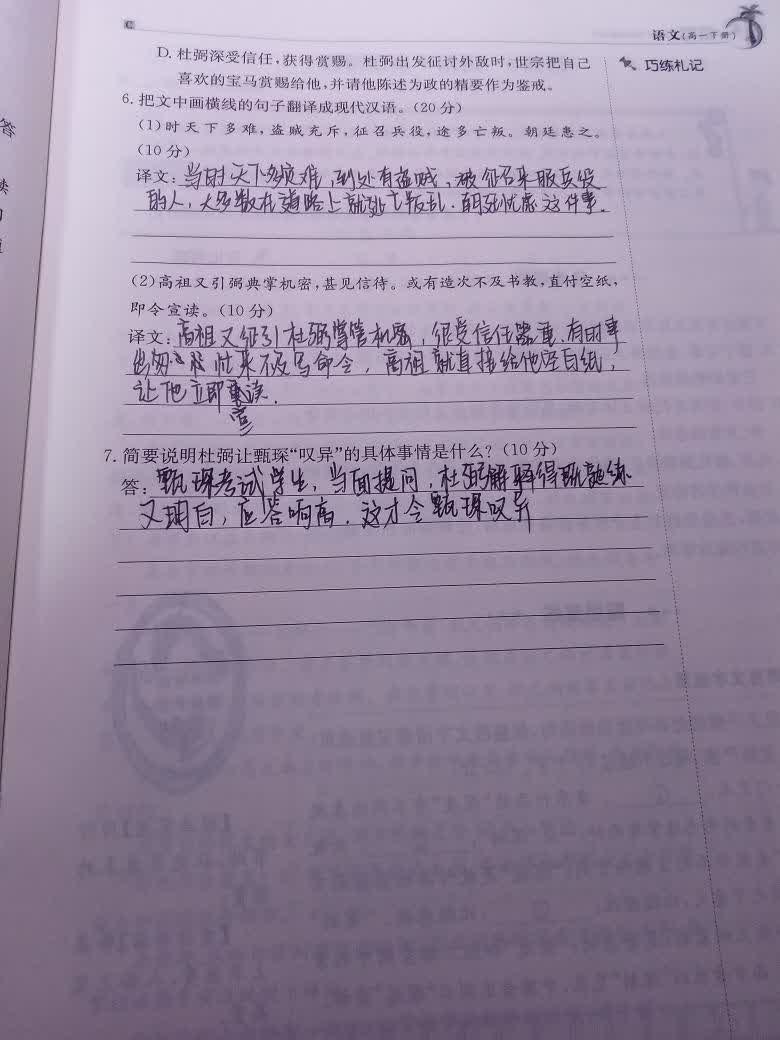 C
语文(高一下册)
D. 杜弼深受信任,获得赏赐。杜弼出发征讨外敌时,世宗把自己
巧练札记
喜欢的宝马赏赐给他,并请他陈述为政的精要作为鉴戒。
6. 把文中画横线的句子翻译成现代汉语。(20分)
(1)时天下多难,盗贼充斥,征召兵役,途多亡叛。朝廷患之。
(10分)
译文:当时天下多灾难,到处有盗贼,被征召来服兵役
的人,大多数在道路上就逃亡叛乱.朝廷忧虑这件事.
(2)高祖又引弼典掌机密,甚见信待。或有造次不及书教,直付空纸,
即令宣读。(10分)
译文:高祖又征引杜弼掌管机密,很受信任器重.有时事
出匆忙来不及写命令,高祖就直接给他空白纸,
让他立即宣读.
7. 简要说明杜弼让甄琛“叹异”的具体事情是什么?(10分)
答:甄琛考试学生,当面提问,杜弼解释得既熟练
又明白,应答响高.这才令甄琛叹异
答